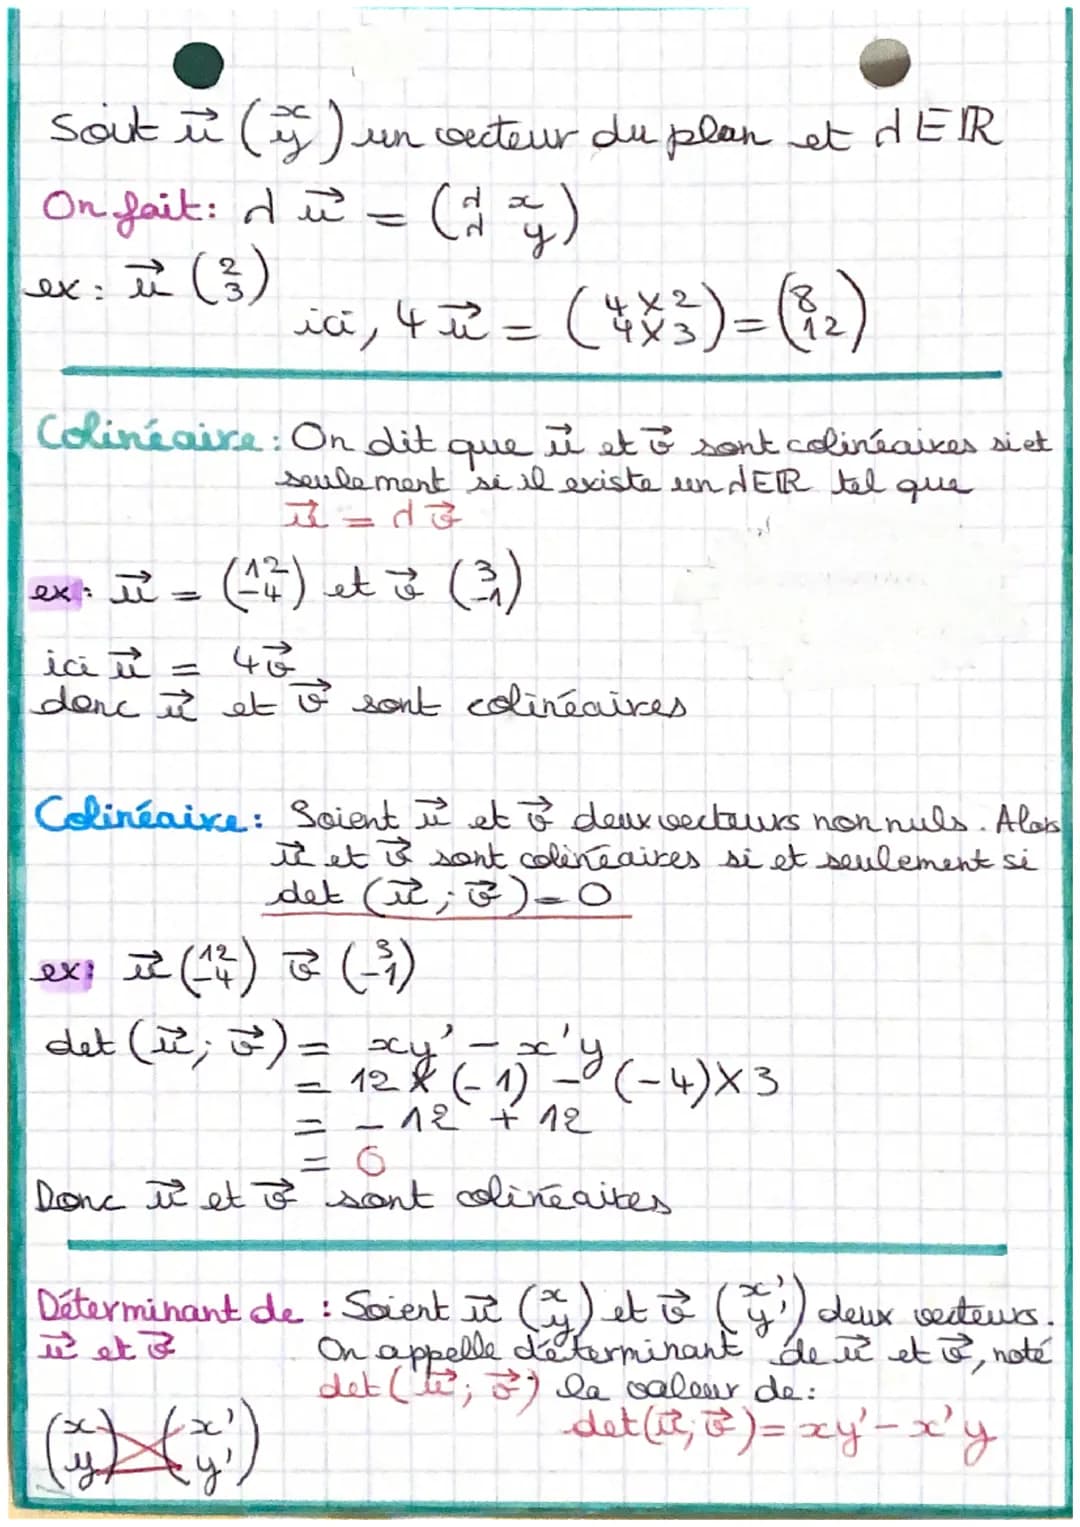 Soit u⃗ (x y) un vecteur du plan et d∈ℝ
On fait: d u⃗ = (d x d y)
ex: u⃗ (2 3)
ici, 4 u⃗ = (4×2 4×3) = (8 12)
Colinéaire: On dit que u⃗ et v⃗ sont colinéaires si et
seulement si il existe un d∈ℝ tel que
u⃗ = d v⃗
ex: u⃗ = (12 -4) et v⃗ (3 -1)
ici u⃗ = 4v⃗
donc u⃗ et v⃗ sont colinéaires
Colinéaire: Soient u⃗ et v⃗ deux vecteurs non nuls. Alors
u⃗ et v⃗ sont colinéaires si et seulement si
det (u⃗; v⃗) = 0
ex: u⃗ (12 -4) v⃗ (3 -1)
det (u⃗; v⃗) = xy' - x'y
= 12 × (-1) - (-4)×3
= -12 + 12
= 0
Donc u⃗ et v⃗ sont colinéaires
Déterminant de : Soient u⃗ (x y) et v⃗ (x' y') deux vecteurs.
u⃗ et v⃗ On appelle déterminant de u⃗ et v⃗, noté
det (u⃗; v⃗) la valeur de:
(x y) (x' y') det(u⃗; v⃗) = xy' - x'y